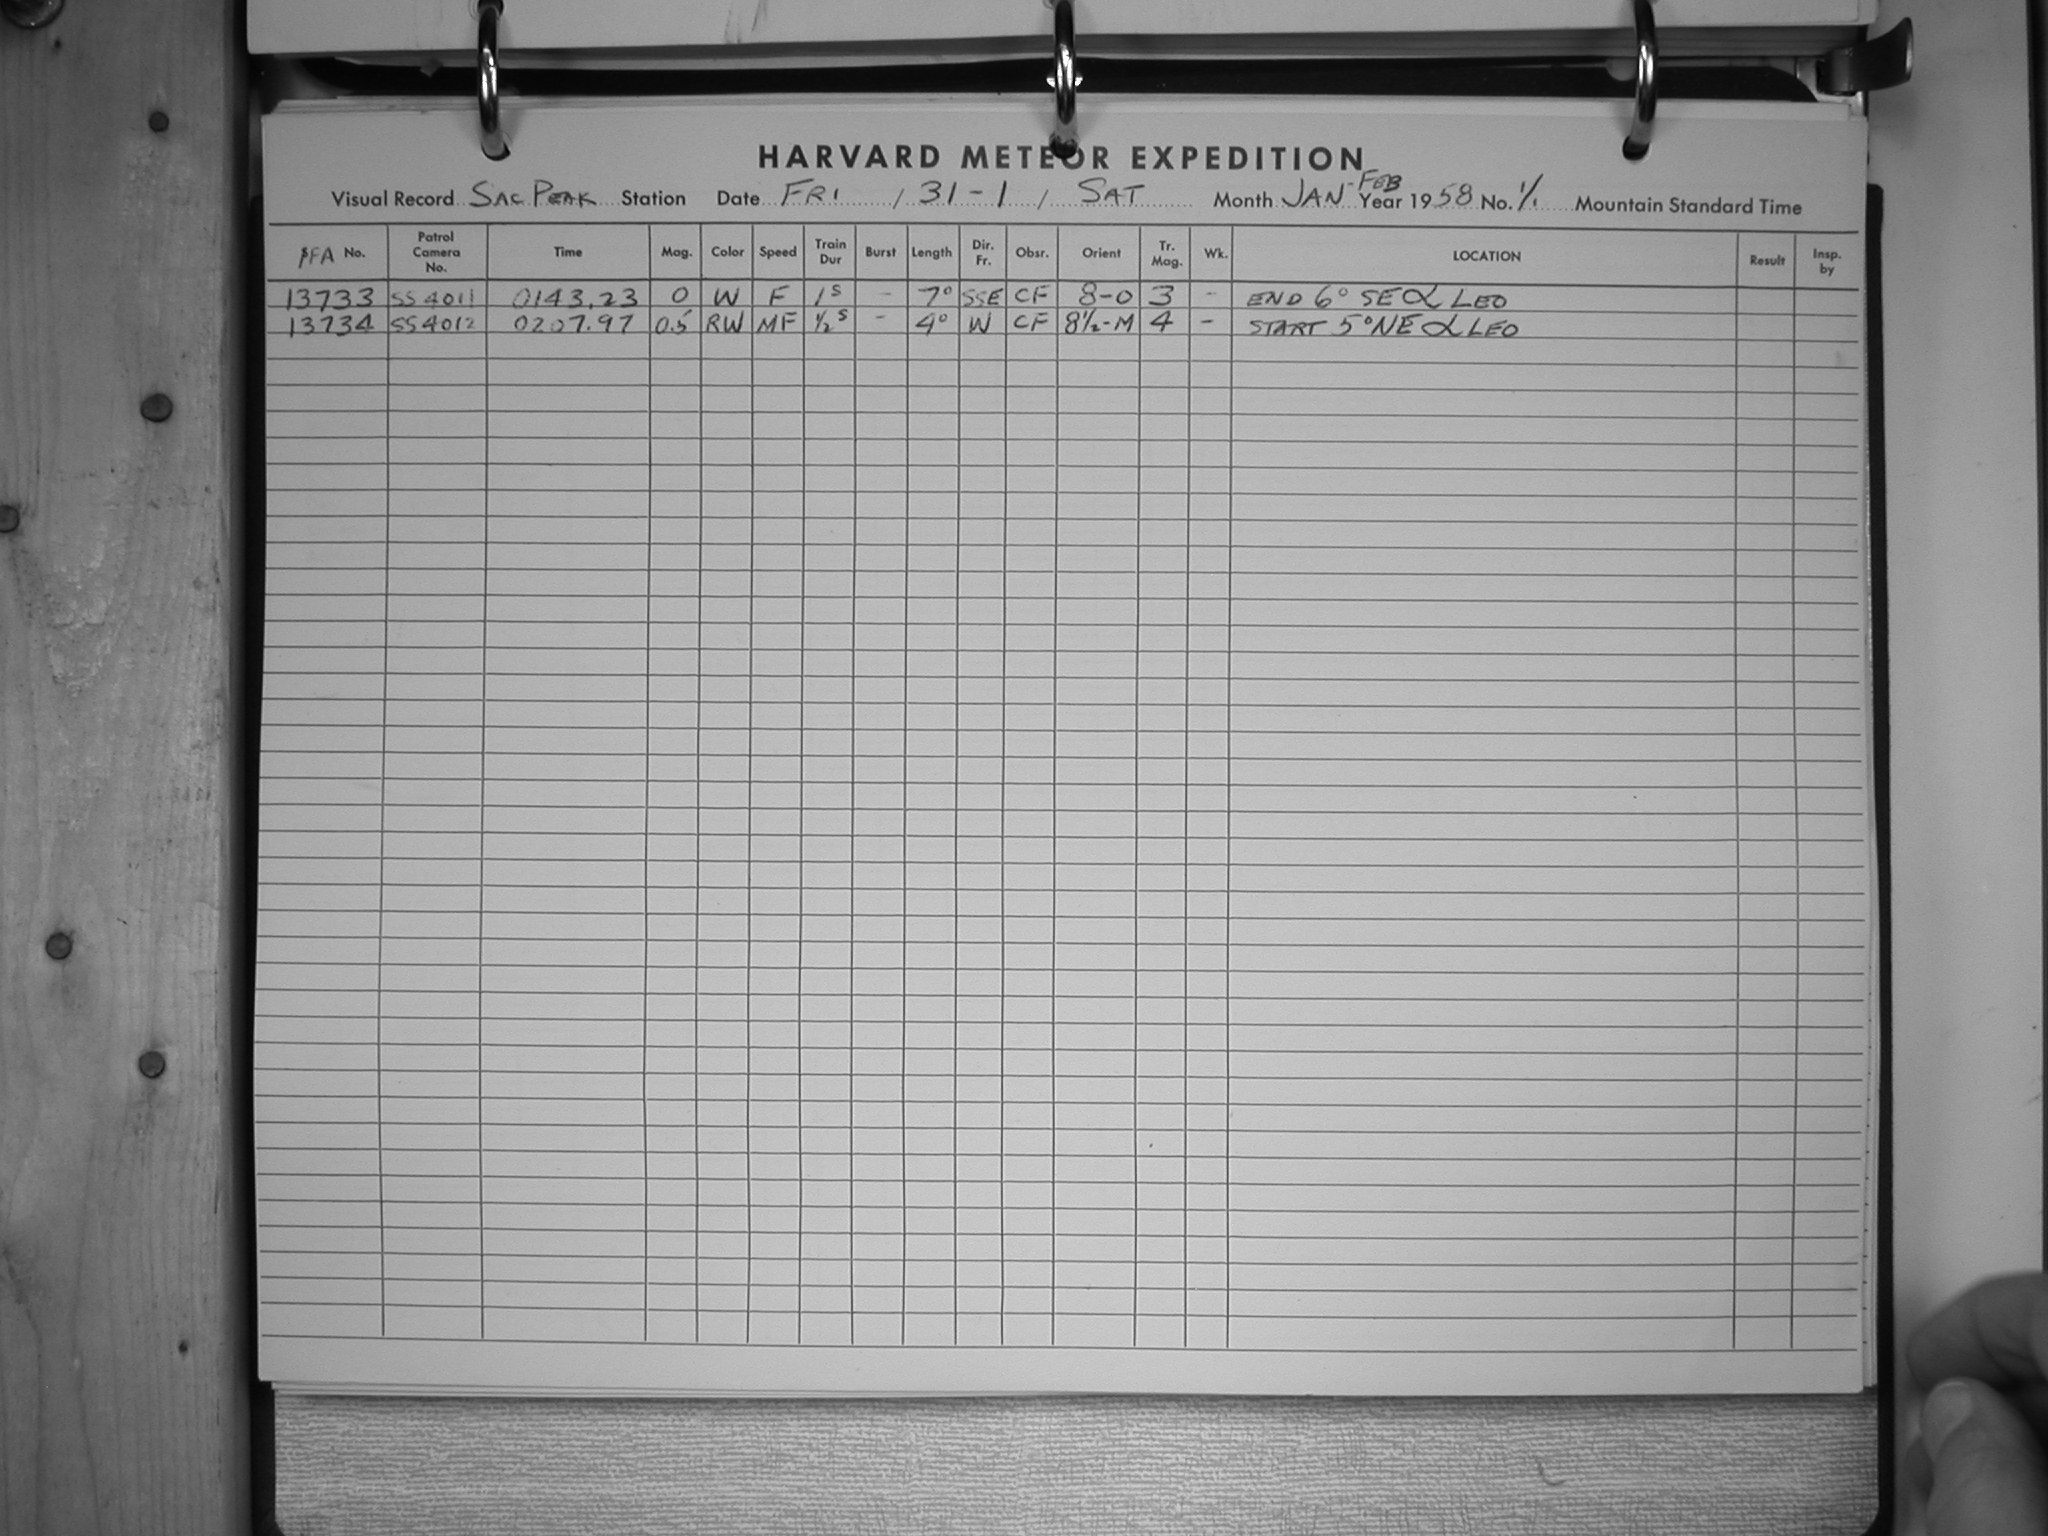 HARVARD METEOR EXPEDITION
Visual Record SAC PEAK Station Date FRI / 31-1 / SAT Month JAN-FEB Year 1958 No. 1/1 Mountain Standard Time
No. Patrol Camera No. Time Mag. Color Speed Train Dur Burst Length Dir. Fr. Obsr. Orient Tr. Mag. Wk. LOCATION Result Insp. by
13733 SS4011 0143.23 0 W F 1s - 7° SSE CF 8-0 3 - END 6° SE α LEO
13734 SS4012 0207.97 0.5 RW MF ½s - 4° W CF 8½-M 4 - START 5° NE α LEO